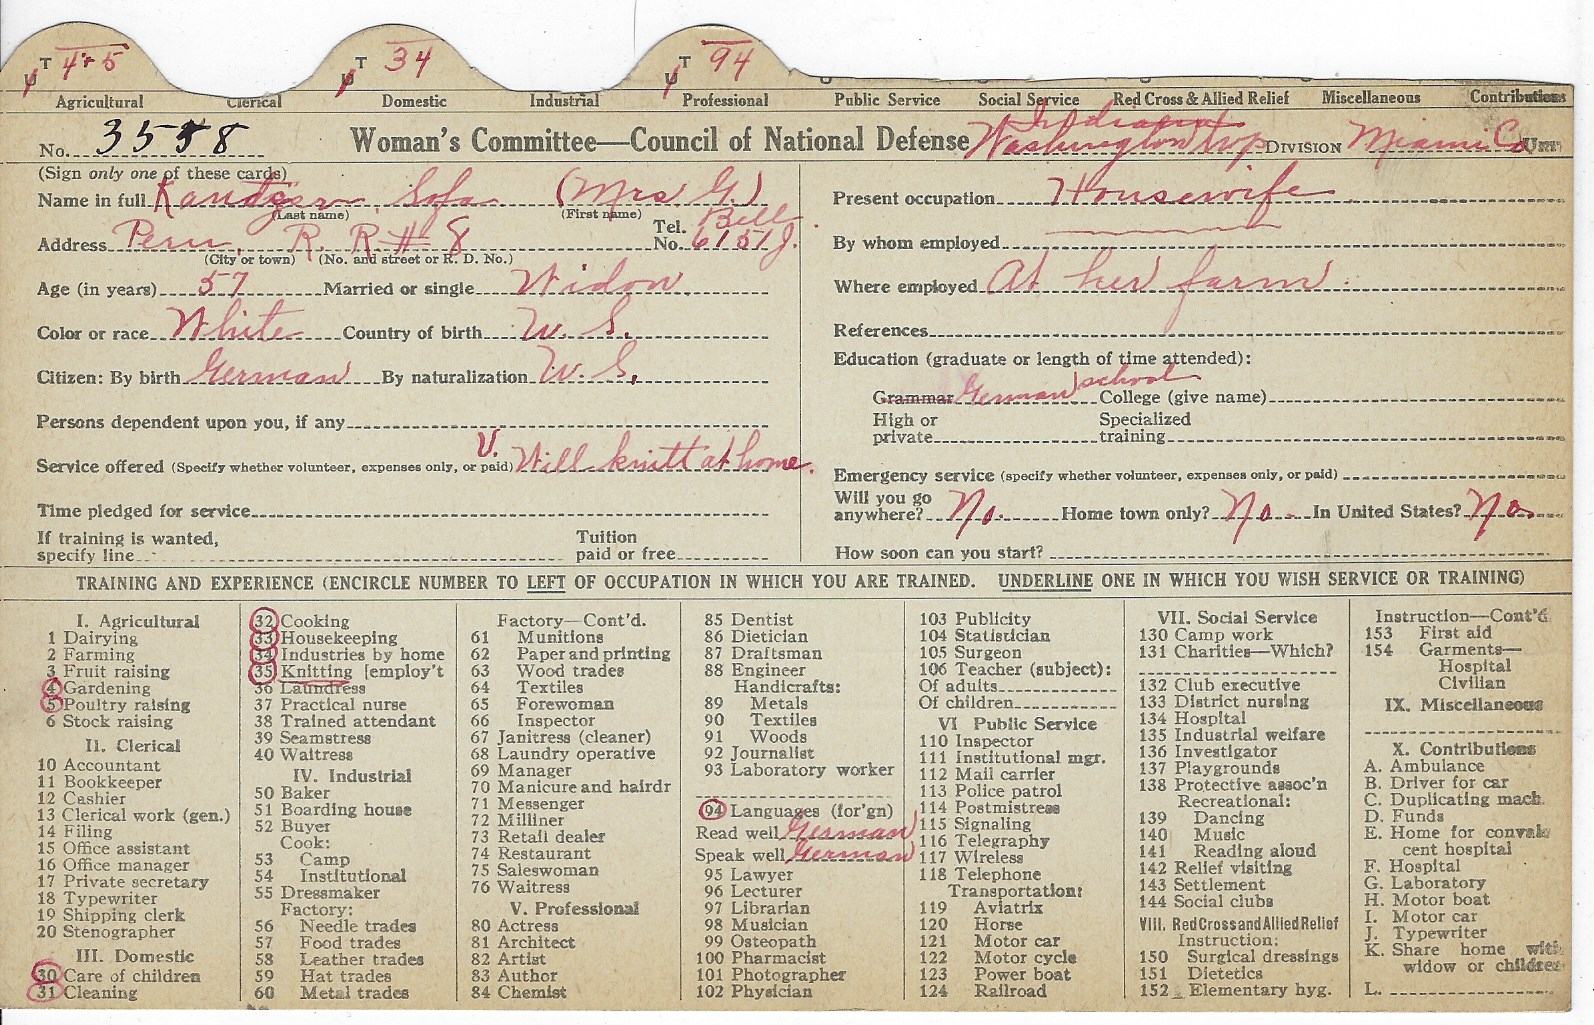 T 4+5 T 34 T 94
U U U
Agricultural Clerical Domestic Industrial Professional Public Service Social Service Red Cross & Allied Relief Miscellaneous Contributions
No. 3558 Woman's Committee—Council of National Defense Indiana Washington twp DIVISION Miami Co Unit
(Sign only one of these cards)
Name in full Sofa (Mrs G.)
(Last name) (First name)
Address Peru, R. R # 8 Tel. No. Bell 6151J.
(City or town) (No. and street or R. D. No.)
Age (in years) 57 Married or single Widow
Color or race White Country of birth U. S.
Citizen: By birth German By naturalization U. S.
Persons dependent upon you, if any
Service offered (Specify whether volunteer, expenses only, or paid) V. Will knitt at home.
Time pledged for service
If training is wanted, specify line Tuition paid or free
Present occupation Housewife
By whom employed
Where employed At her farm
References
Education (graduate or length of time attended):
Grammar German school College (give name)
High or private Specialized training
Emergency service (specify whether volunteer, expenses only, or paid)
Will you go anywhere? No. Home town only? No. In United States? No.
How soon can you start?
TRAINING AND EXPERIENCE (ENCIRCLE NUMBER TO LEFT OF OCCUPATION IN WHICH YOU ARE TRAINED. UNDERLINE ONE IN WHICH YOU WISH SERVICE OR TRAINING)
I. Agricultural
1 Dairying
2 Farming
3 Fruit raising
4 Gardening
5 Poultry raising
6 Stock raising
II. Clerical
10 Accountant
11 Bookkeeper
12 Cashier
13 Clerical work (gen.)
14 Filing
15 Office assistant
16 Office manager
17 Private secretary
18 Typewriter
19 Shipping clerk
20 Stenographer
III. Domestic
30 Care of children
31 Cleaning
32 Cooking
33 Housekeeping
34 Industries by home
35 Knitting [employ't
36 Laundress
37 Practical nurse
38 Trained attendant
39 Seamstress
40 Waitress
IV. Industrial
50 Baker
51 Boarding house
52 Buyer
Cook:
53 Camp
54 Institutional
55 Dressmaker
Factory:
56 Needle trades
57 Food trades
58 Leather trades
59 Hat trades
60 Metal trades
Factory—Cont'd.
61 Munitions
62 Paper and printing
63 Wood trades
64 Textiles
65 Forewoman
66 Inspector
67 Janitress (cleaner)
68 Laundry operative
69 Manager
70 Manicure and hairdr
71 Messenger
72 Milliner
73 Retail dealer
74 Restaurant
75 Saleswoman
76 Waitress
V. Professional
80 Actress
81 Architect
82 Artist
83 Author
84 Chemist
85 Dentist
86 Dietician
87 Draftsman
88 Engineer
Handicrafts:
89 Metals
90 Textiles
91 Woods
92 Journalist
93 Laboratory worker
94 Languages (for'gn)
Read well German
Speak well German
95 Lawyer
96 Lecturer
97 Librarian
98 Musician
99 Osteopath
100 Pharmacist
101 Photographer
102 Physician
103 Publicity
104 Statistician
105 Surgeon
106 Teacher (subject):
Of adults
Of children
VI Public Service
110 Inspector
111 Institutional mgr.
112 Mail carrier
113 Police patrol
114 Postmistress
115 Signaling
116 Telegraphy
117 Wireless
118 Telephone
Transportation:
119 Aviatrix
120 Horse
121 Motor car
122 Motor cycle
123 Power boat
124 Railroad
VII. Social Service
130 Camp work
131 Charities—Which?
132 Club executive
133 District nursing
134 Hospital
135 Industrial welfare
136 Investigator
137 Playgrounds
138 Protective assoc'n
Recreational:
139 Dancing
140 Music
141 Reading aloud
142 Relief visiting
143 Settlement
144 Social clubs
VIII. Red Cross and Allied Relief
Instruction:
150 Surgical dressings
151 Dietetics
152 Elementary hyg.
Instruction—Cont'd.
153 First aid
154 Garments—
Hospital
Civilian
IX. Miscellaneous
X. Contributions
A. Ambulance
B. Driver for car
C. Duplicating mach.
D. Funds
E. Home for convales
cent hospital
F. Hospital
G. Laboratory
H. Motor boat
I. Motor car
J. Typewriter
K. Share home with
widow or children
L.